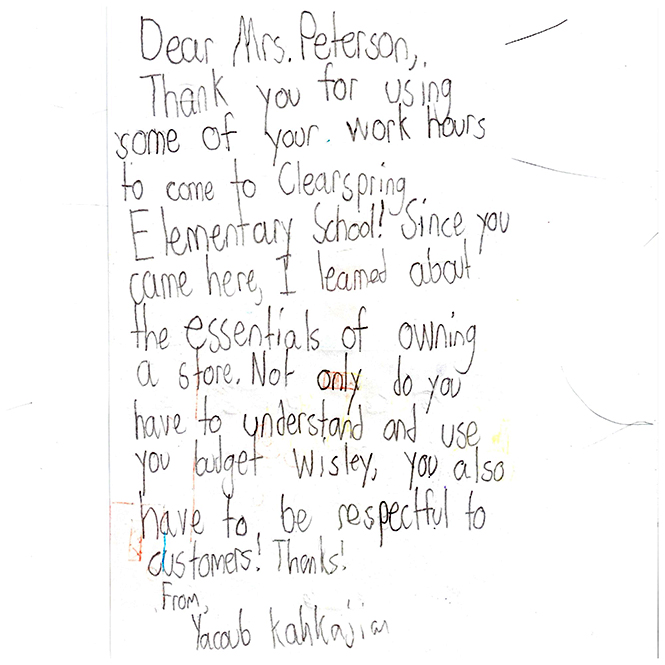 Dear Mrs. Peterson,
Thank you for using
some of your work hours
to come to Clearspring
Elementary School! Since you
came here, I learned about
the essentials of owning
a store. Not only do you
have to understand and use
you budget wisley, you also
have to be respectful to
customers! Thanks!
From,
Yacoub Kahkajian